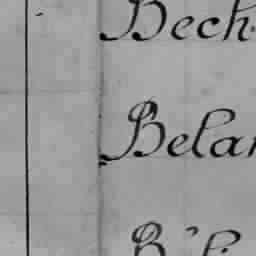 Bech
Belar